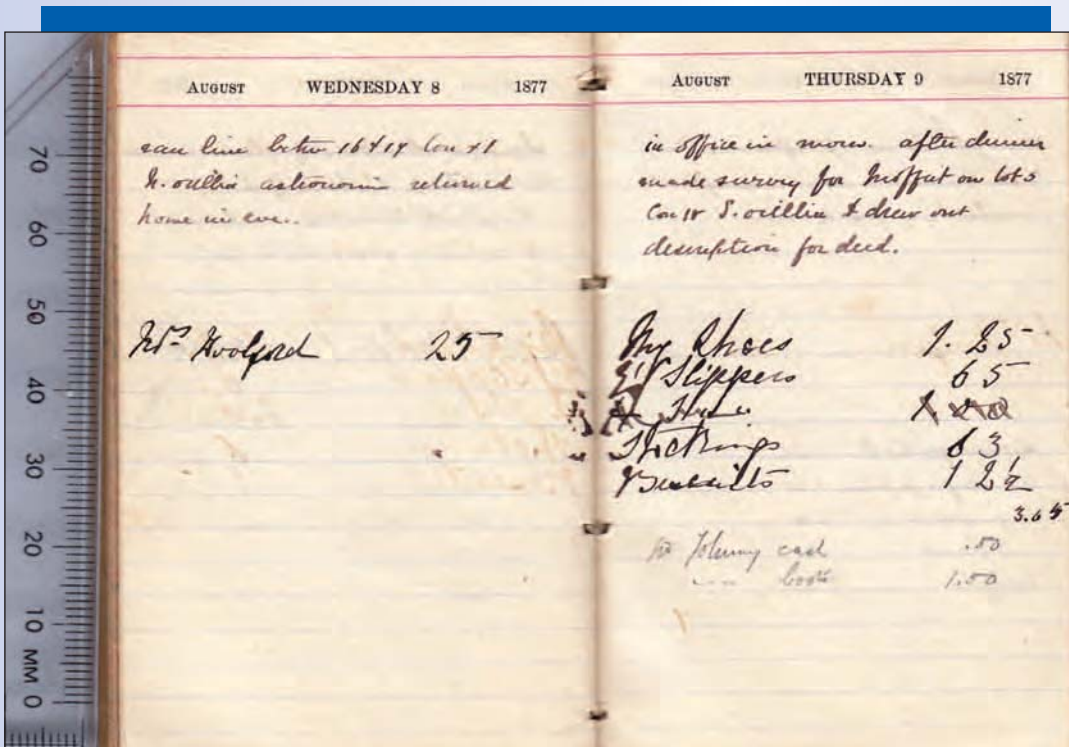 AUGUST WEDNESDAY 8 1877
ran line betw 16 & 17 Con XI
N. orillia astronomic returned
home in eve..
Mrs Woolford 25
AUGUST THURSDAY 9 1877
in office in morn. after dinner
made survey for Moffat on lot 2
Con IV S. orillia & drew out
description for deed.
My Shoes 1.25
Slippers 65
Stockings 63
Biscuits 12½
3.65
Johnny cash .50
boots 1.50
70
60
50
40
30
20
10
MM 0